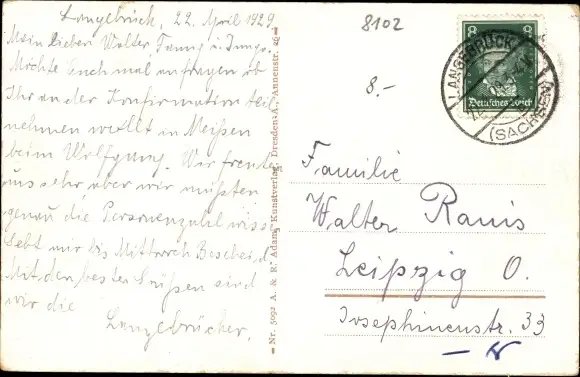 Langebrück, 22. April 1929
Mein lieber Walter Fanny u. Jungs.
Möchte Euch mal anfragen ob
Ihr an der Konfirmation teil
nehmen wollt in Meißen
beim Wolfgang. Wir freuen
uns sehr aber wir müßten
genau die Personenzahl wiss
gebt mir bis Mittwoch Bescheid
Mit den besten Grüßen sind
wir die
Langebrücker.
Nr. 5092 A. & R. Adam, Kunstverlag, Dresden-A., Annenstr.
8102
8.-
8 8
Deutsches Reich
LANGEBRÜCK
(SACHSEN)
Familie
Walter Ranis
Leipzig O.
Josephinenstr. 33